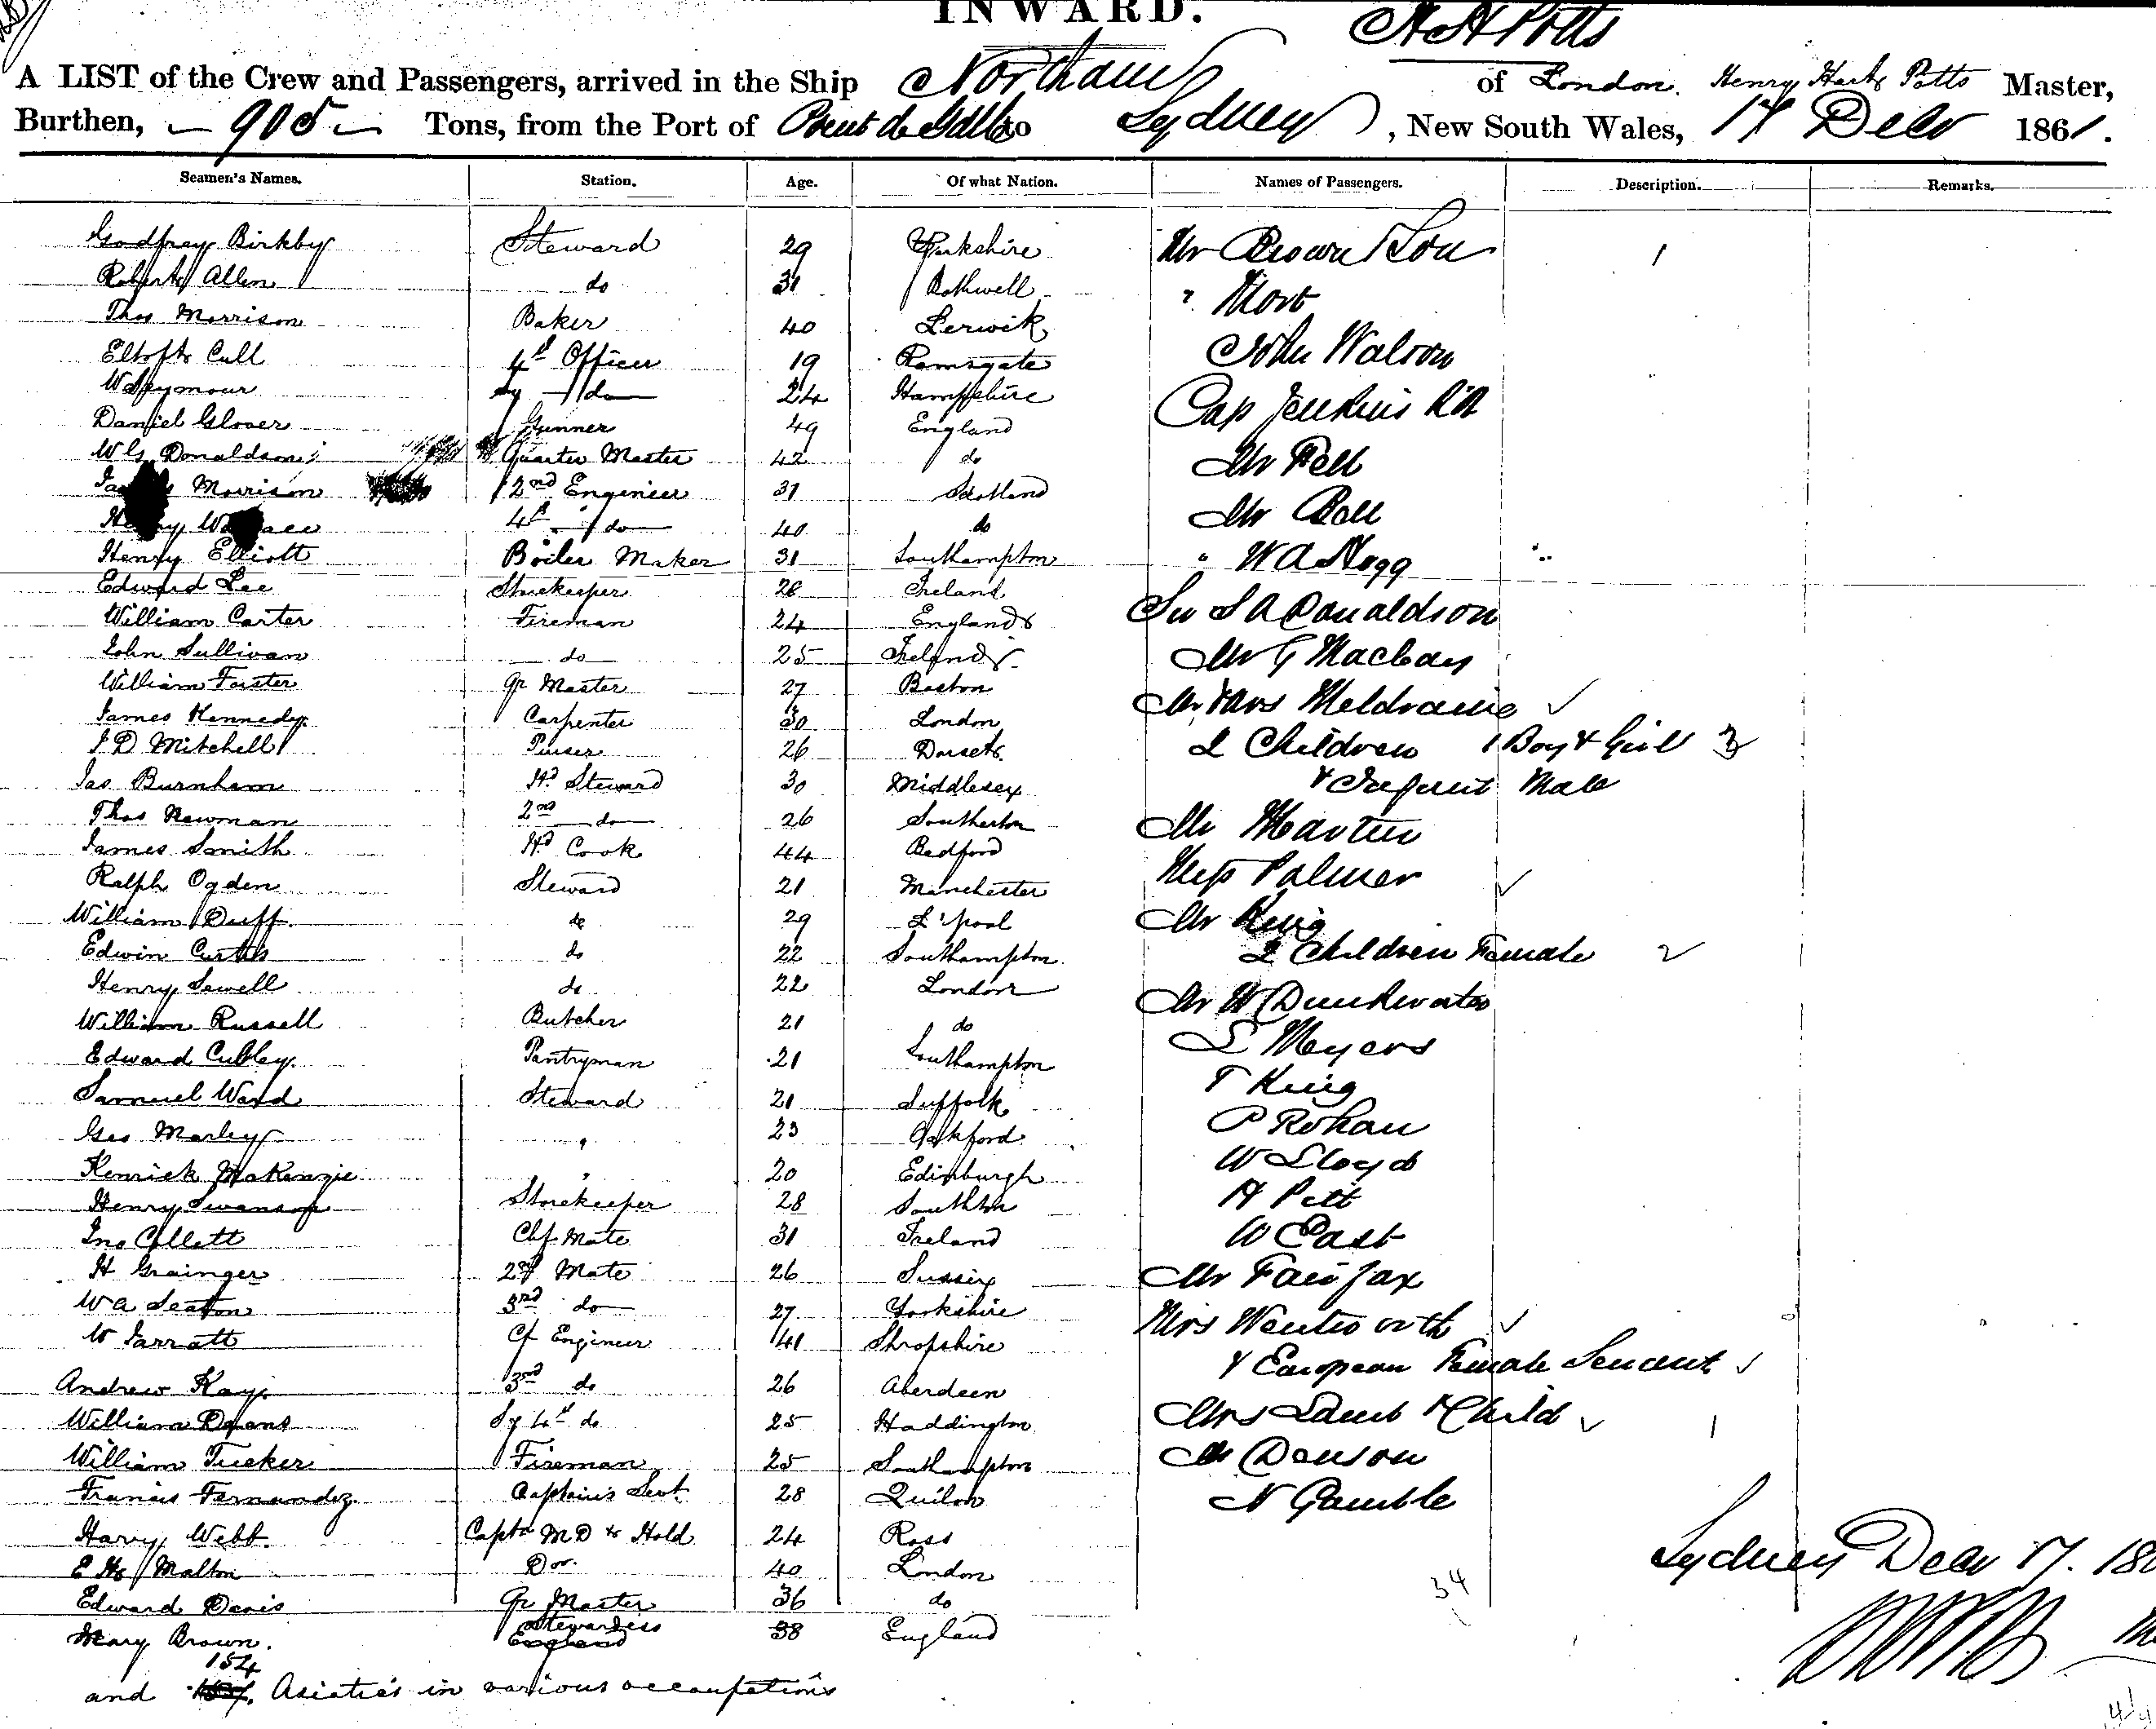 INWARD.
H H Potts
A LIST of the Crew and Passengers, arrived in the Ship Northam of London. Henry Potts Master,
Burthen, 905 Tons, from the Port of Point de Galle to Sydney, New South Wales, 17 Decr 1861.
Seamen's Names. Station. Age. Of what Nation. Names of Passengers. Description. Remarks.
Godfrey Birkby Steward 29 Yorkshire Mr Brown & Son 1
Robert Allen do 31 Bothwell " Mort
Thos Morrison Baker 40 Lerwick John Watson
Cull 4th Officer 19 Ramsgate Cap Jenkins RA
W Seymour do 24 Hampshire
Daniel Glover Gunner 49 England Mr Fell
W G Donaldson Quarter Master 42 do Mr Bell
Morrison 2nd Engineer 31 Scotland
Henry Wallace 4th do 40 do
Henry Elliott Boiler Maker 31 Southampton " W A Hogg
Edward Lee Storekeeper 26 Ireland
William Carter Fireman 24 England Sir S A Donaldson
John Sullivan do 25 Ireland Mr G Macleay
William Forster Qr Master 27 Boston Mr & Mrs Meldrum
James Kennedy Carpenter 30 London
J D Mitchell Purser 26 Dorset 2 Children 1 Boy & Girl 3
Jas Burnham Hd Steward 30 Middlesex & Infant Male
Thos Newman 2nd do 26 Southton Mr Martin
James Smith Hd Cook 44 Bedford
Ralph Ogden Steward 21 Manchester Miss Palmer
William Duff do 29 L'pool Mr King
Edwin Curtis do 22 Southampton 2 Children Female 2
Henry Sewell do 22 London Mr W Drinkwater
William Russell Butcher 21 do S Meyers
Edward Cubley Pantryman 21 Southampton
Samuel Ward Steward 21 Suffolk T King
Geo Marley " 23 Oakford P Rohan
Kenrick McKenzie " 20 Edinburgh W Lloyd
Henry Swanson Storekeeper 28 Southton H Pitt
Jno Collett Chf Mate 31 Ireland W East
H Grainger 2nd Mate 26 Sussex Mr Fairfax
W A Seaton 3rd do 27 Yorkshire Mrs Wentworth
W Jarratt Cf Engineer 41 Shropshire & European Female Servant
Andrew Kay 3rd do 26 Aberdeen
William Deans Sy 4th do 25 Haddington Mrs Lamb & Child 1
William Tucker Fireman 25 Southampton Mr Denson
Francis Fernandez Captain's Sert 28 Quilon N Gamble
Harry Webb Captn M D & Hold 24 Ross
Malton Do. 40 London
Edward Davis Qr Master 36 do
34
Sydney Decr 17. 186
Mary Brown. Stewardess 38 England
England
154
and Asiatics in various occupations